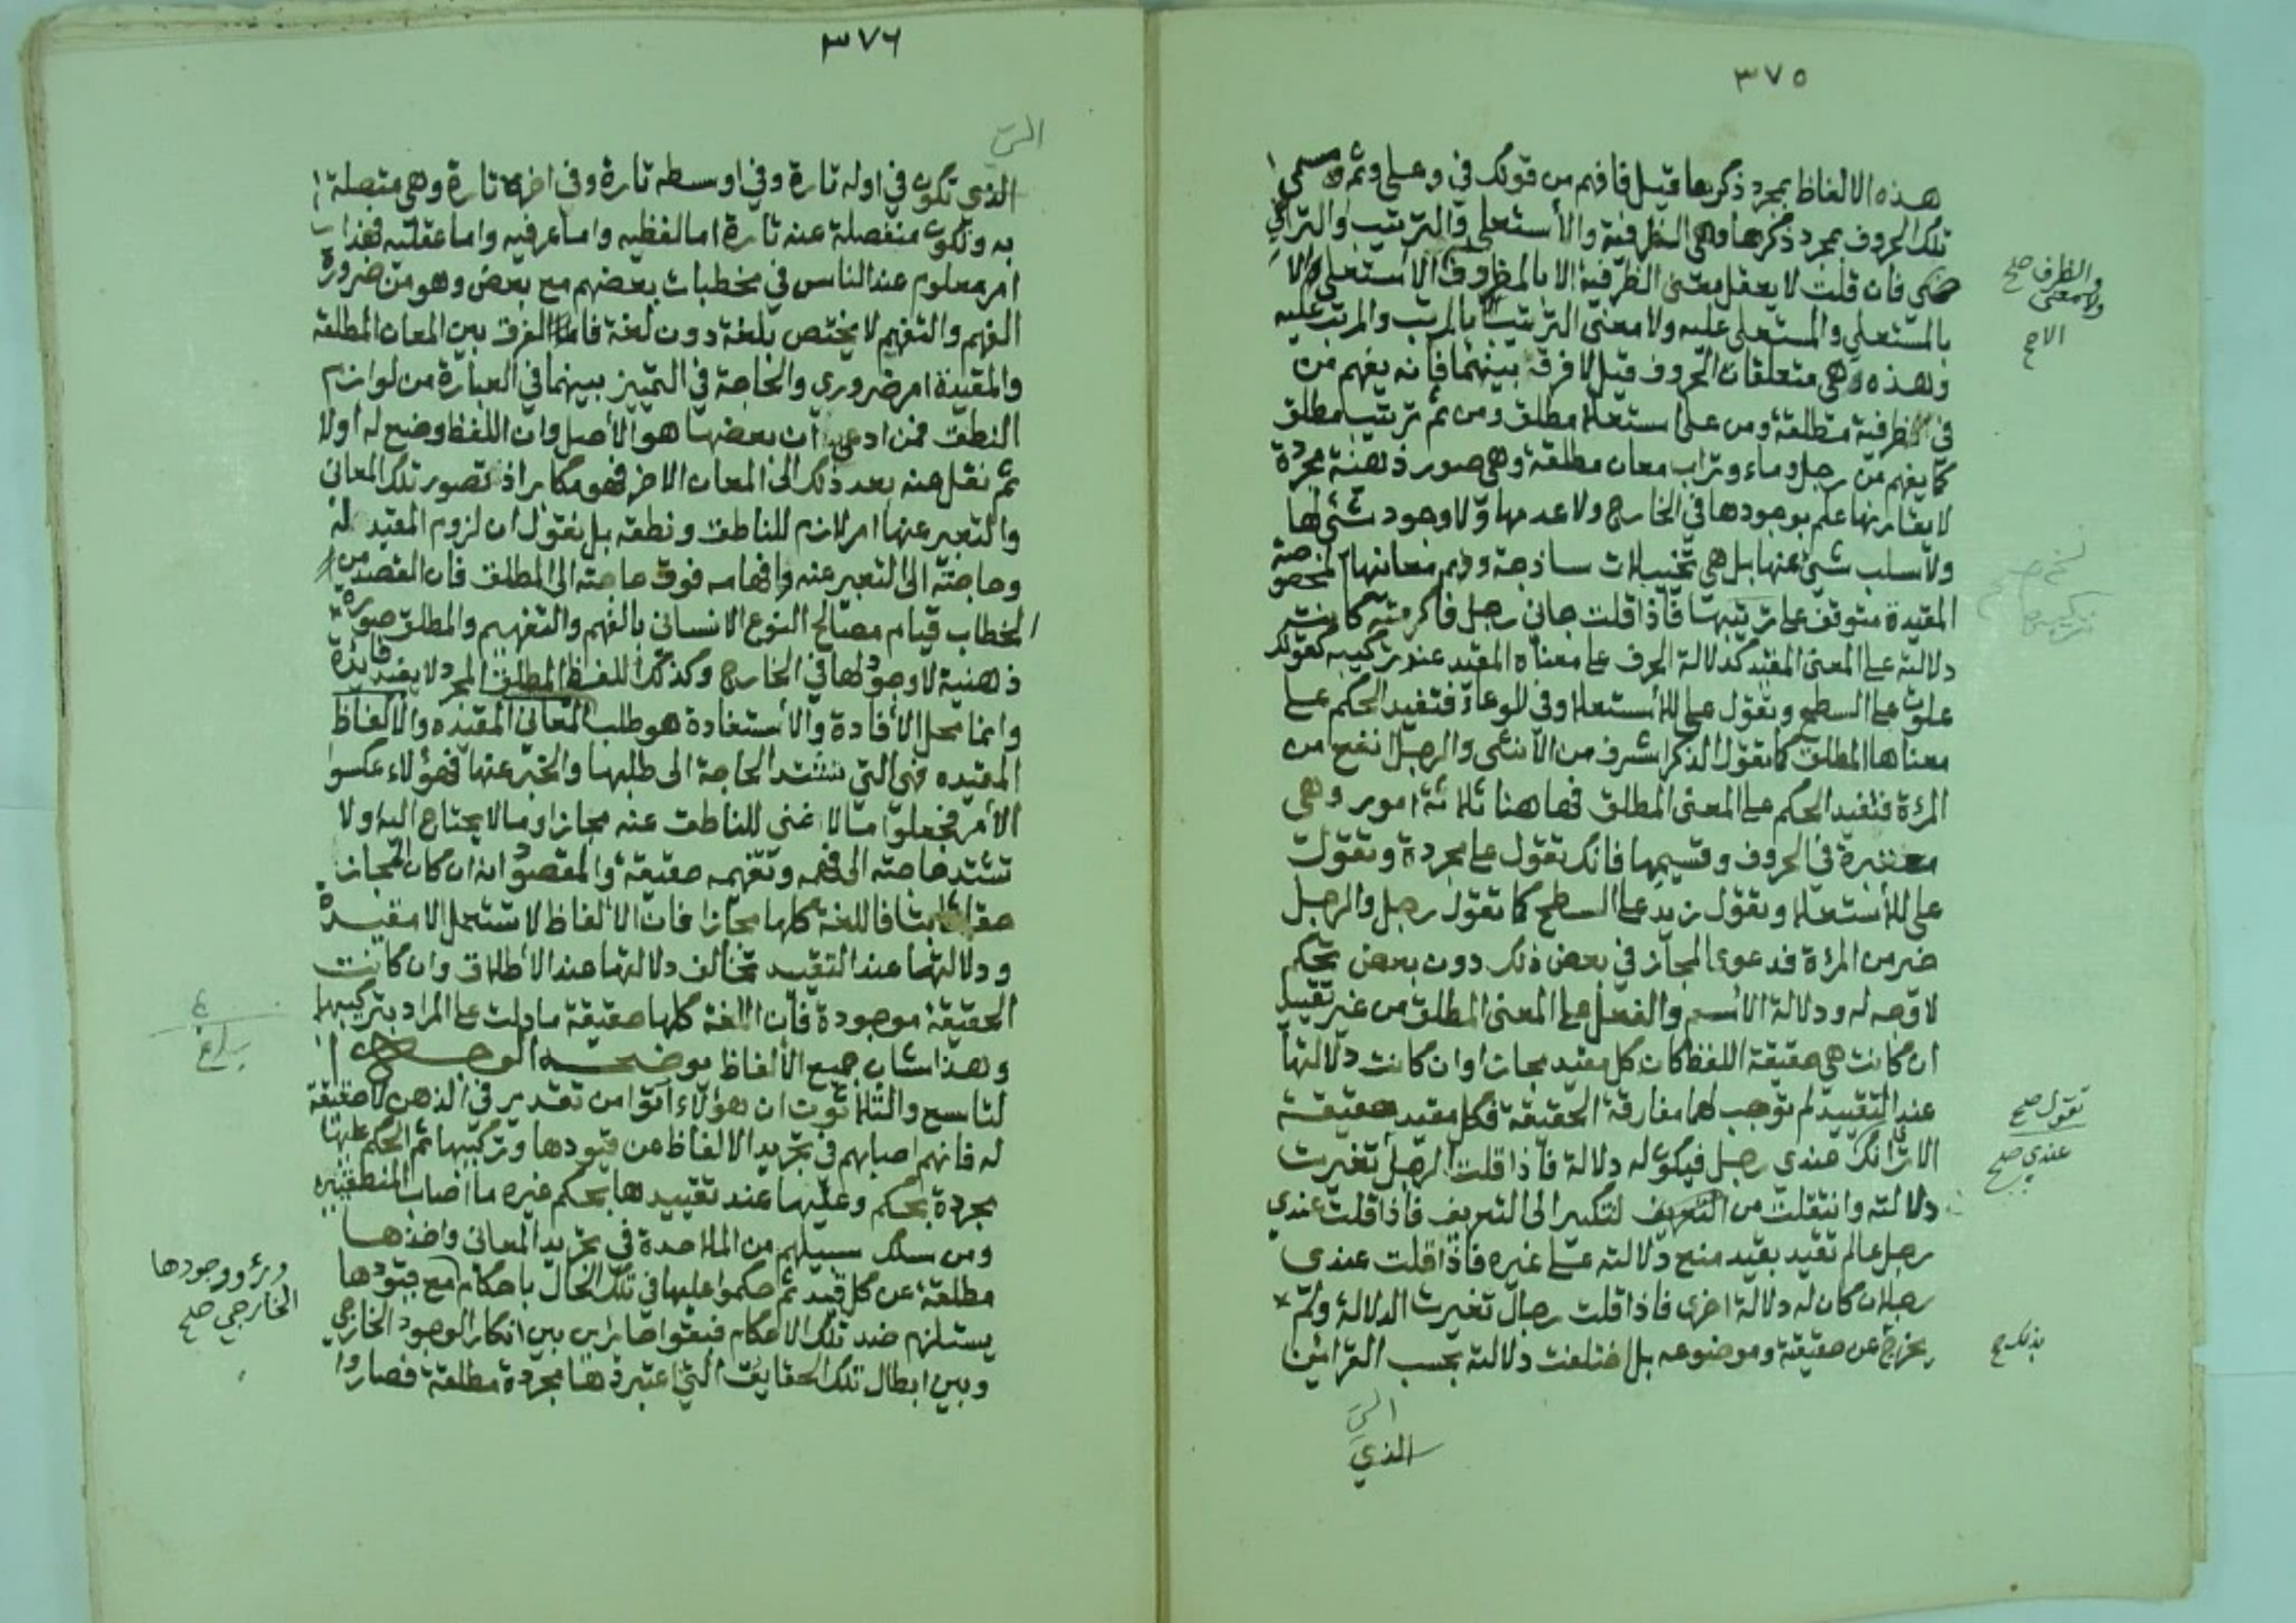 ٣٧٥
هذه الالفاظ بمجرد ذكرها قيل فافهم من قولك في وعلى وثم مسمى
تلك الحروف بمجرد ذكرها وهي الظرفية والأستعلا والترتيب والتراخي
فان قلت لا يعقل معنى الظرفية الا بالمظروف الاستعلى الا
بالمستعلي والمستعلى عليه ولا معنى الترتيب الا بالمرتب والمرتب عليه
وهذه هي متعلقات الحروف قيل لا فرق بينهما فانه يفهم من
في الظرفية مطلقة ومن على استعلا مطلق ومن ثم ترتيب مطلق
كما يفهم من رجل وماء وتراب معان مطلقة وهي صور ذهنية مجردة
لا يقارنها علم بوجودها في الخارج ولا عدمها ولا وجود شئي لها
ولا سلب شئي عنها بل هي تخيلات ساذجة وفهم معانيها المخصوصة
المقيدة متوقف على تركيبها فاذا قلت جاني رجل فاكرمته كانت
دلالته على المعنى المقيد كدلالة الحرف على معناه المقيد عند تركيبه كقولك
علوت على السطح وتقول على للأستعلا وفي للوعاء فتفيد الحكم على
معناها المطلق كما تقول الذكر اشرف من الأنثى والرجل انفع من
المرءة فتفيد الحكم على المعنى المطلق فهاهنا ثلاثة امور وهي
معتبرة في الحروف وقسيمها فانك تقول على مجردة وتقول
على للأستعلا وتقول زيد على السطح كما تقول رجل والرجل
خير من المرءة فدعوى المجاز في بعض ذلك دون بعض تحكم
لا وجه له ودلالة الأسم والفعل على المعنى المطلق من غير تقييد
ان كانت هي حقيقة اللفظ كان كل مقيد مجازا وان كانت دلالتها
عند التقييد لم توجب لها مفارقة الحقيقة فكل مقيد حقيقة
الا ترى انك عندي رجل فيكون له دلالة فاذا قلت الرجل تغيرت
دلالته وانتقلت من التنكير الى التعريف فاذا قلت عندي
رجل عالم تقيد بقيد منع دلالته على غيره فاذا قلت عندي
رجلان كان له دلالة اخرى فاذا قلت رجال تغيرت الدلالة ولم
يخرج عن حقيقته وموضوعه بل اختلفت دلالته بحسب القرائن
الذي
والظرف صح
ولا معنى
الا صح
تقول صح
عندي صح
بذلك صح
٣٧٦
التي
الذي تكون في اوله تارة وفي اوسطه تارة وفي اخره تارة وهي متصلة
به وتكون منفصلة عنه تارة اما لفظيه واما عرفيه واما عقليه فهذا
امر معلوم عند الناس في مخطبات بعضهم مع بعض وهو من ضرورة
الفهم والتفهيم لا يختص بلغة دون لغة فاما الفرق بين المعان المطلقة
والمقيدة امر ضروري والحاجة في التمييز بينهما في العبارة من لوازم
النطق فمن ادعى ان بعضها هو الأصل وان اللفظ وضع له اولا
ثم نقل عنه بعد ذلك الى المعان الاخر فهو مكابر اذ تصور تلك المعاني
والتعبير عنها امر لازم للناطق ونطقه بل نقول ان لزوم المقيد له
وحاجته الى التعبير عنه وافهامه فوق حاجته الى المطلق فان القصد من
الخطاب قيام مصالح النوع الانساني بالفهم والتفهيم والمطلق صورة
ذهنية لا وجود لها في الخارج وكذلك اللفظ المطلق المجرد لا يفيد فايدة
وانما محل الأفادة والأستفادة هو طلب المعاني المقيده والالفاظ
المقيده فهي التي تشتد الحاجة الى طلبها والخبر عنها فهؤلاء عكسوا
الأمر فجعلوا ما لا غنى للناطق عنه مجازا وما لا يحتاج اليه ولا
تشتد حاجته الى فهمه وتفهمه حقيقة والمقصود انه ان كان المجاز
حقا ثابتا فاللغة كلها مجاز فان الألفاظ لا تستعمل الا مقيدة
ودلالتها عند التقييد تخالف دلالتها عند الأطلاق وان كانت
الحقيقة موجودة فان اللغة كلها حقيقة ما دلت على المراد بتركيبها
وهذا شان جميع الألفاظ يوضحه الوجه ا
لتاسع والثلاثون ان هؤلاء اتوا من تقدير في الذهن لا حقيقة
له فانهم اصابهم في تجريد الالفاظ عن قيودها وتركيبها ثم الحكم عليها
مجردة بحكم وعليها عند تقييدها بحكم غيره ما اصاب المنطقيين
ومن سلك سبيلهم من الملاحدة في تجريد المعاني واخذها
مطلقة عن كل قيد ثم حكموا عليها في تلك الحال باحكام مع قيودها
يستلزم ضد تلك الاحكام فبقوا حائرين بين انكار الوجود الخارجي
وبين ابطال تلك الحقايق التي اعتبرت ذهنا مجردة مطلقة فصاروا
بلاغ
وراؤ وجودها
الخارجي صح